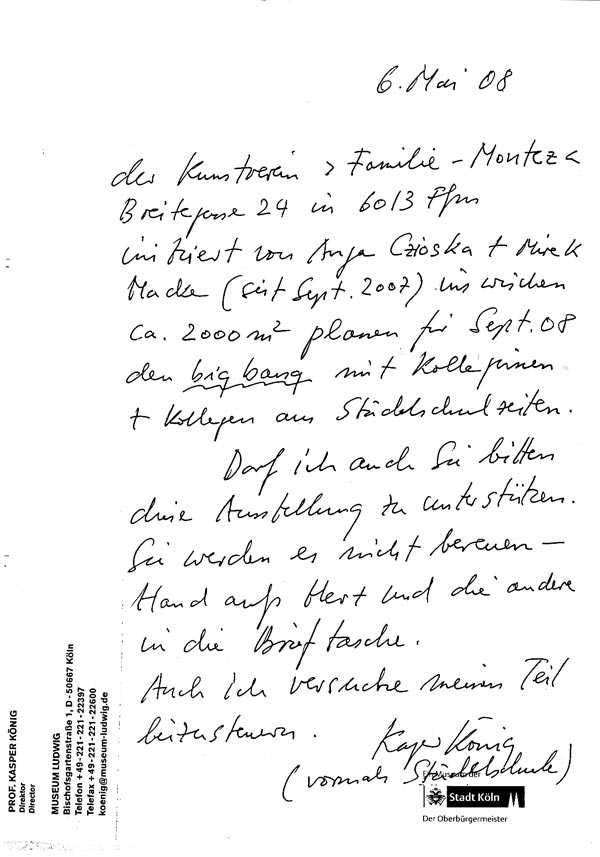 6. Mai 08
der Kunstverein > Familie - Montez <
Breitegasse 24 in 6013 Ffm
initiert von Anja Czioska + Mirek
Macke (seit Sept. 2007) inzwischen
ca. 2000m² planen für Sept. 08
den big bang mit Kolleginnen
+ Kollegen aus Städelschulzeiten.
Darf ich auch Sie bitten
diese Ausstellung zu unterstützen.
Sie werden es nicht bereuen —
Hand aufs Herz und die andere
in die Brieftasche.
Auch ich versuche meinen Teil
beizusteuern.
Kasper König
(vormals Städelschule)
PROF. KASPER KÖNIG
Direktor
Director
MUSEUM LUDWIG
Bischofsgartenstraße 1, D - 50667 Köln
Telefon +49 - 221 - 221-22397
Telefax +49 - 221 - 221-22600
koenig@museum-ludwig.de
Ein Museum der
Stadt Köln
Der Oberbürgermeister